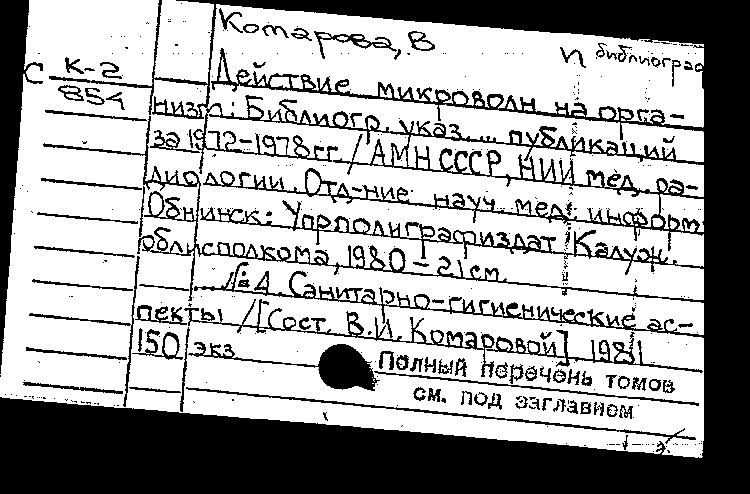 Комарова, В
п библиограф
С К-2
854
Действие микроволн на орга-
низм: Библиогр. указ. ... публикаций
за 1972-1978 гг. / АМН СССР, НИИ мед. ра-
диологии. Отд-ние науч. мед. информ
Обнинск: Упрполиграфиздат Калуж.
облисполкома, 1980 - 21 см.
... № 4. Санитарно-гигиенические ас-
пекты / [Сост. В.И. Комаровой]. 1981
150 экз
Полный перечень томов
см. под заглавием